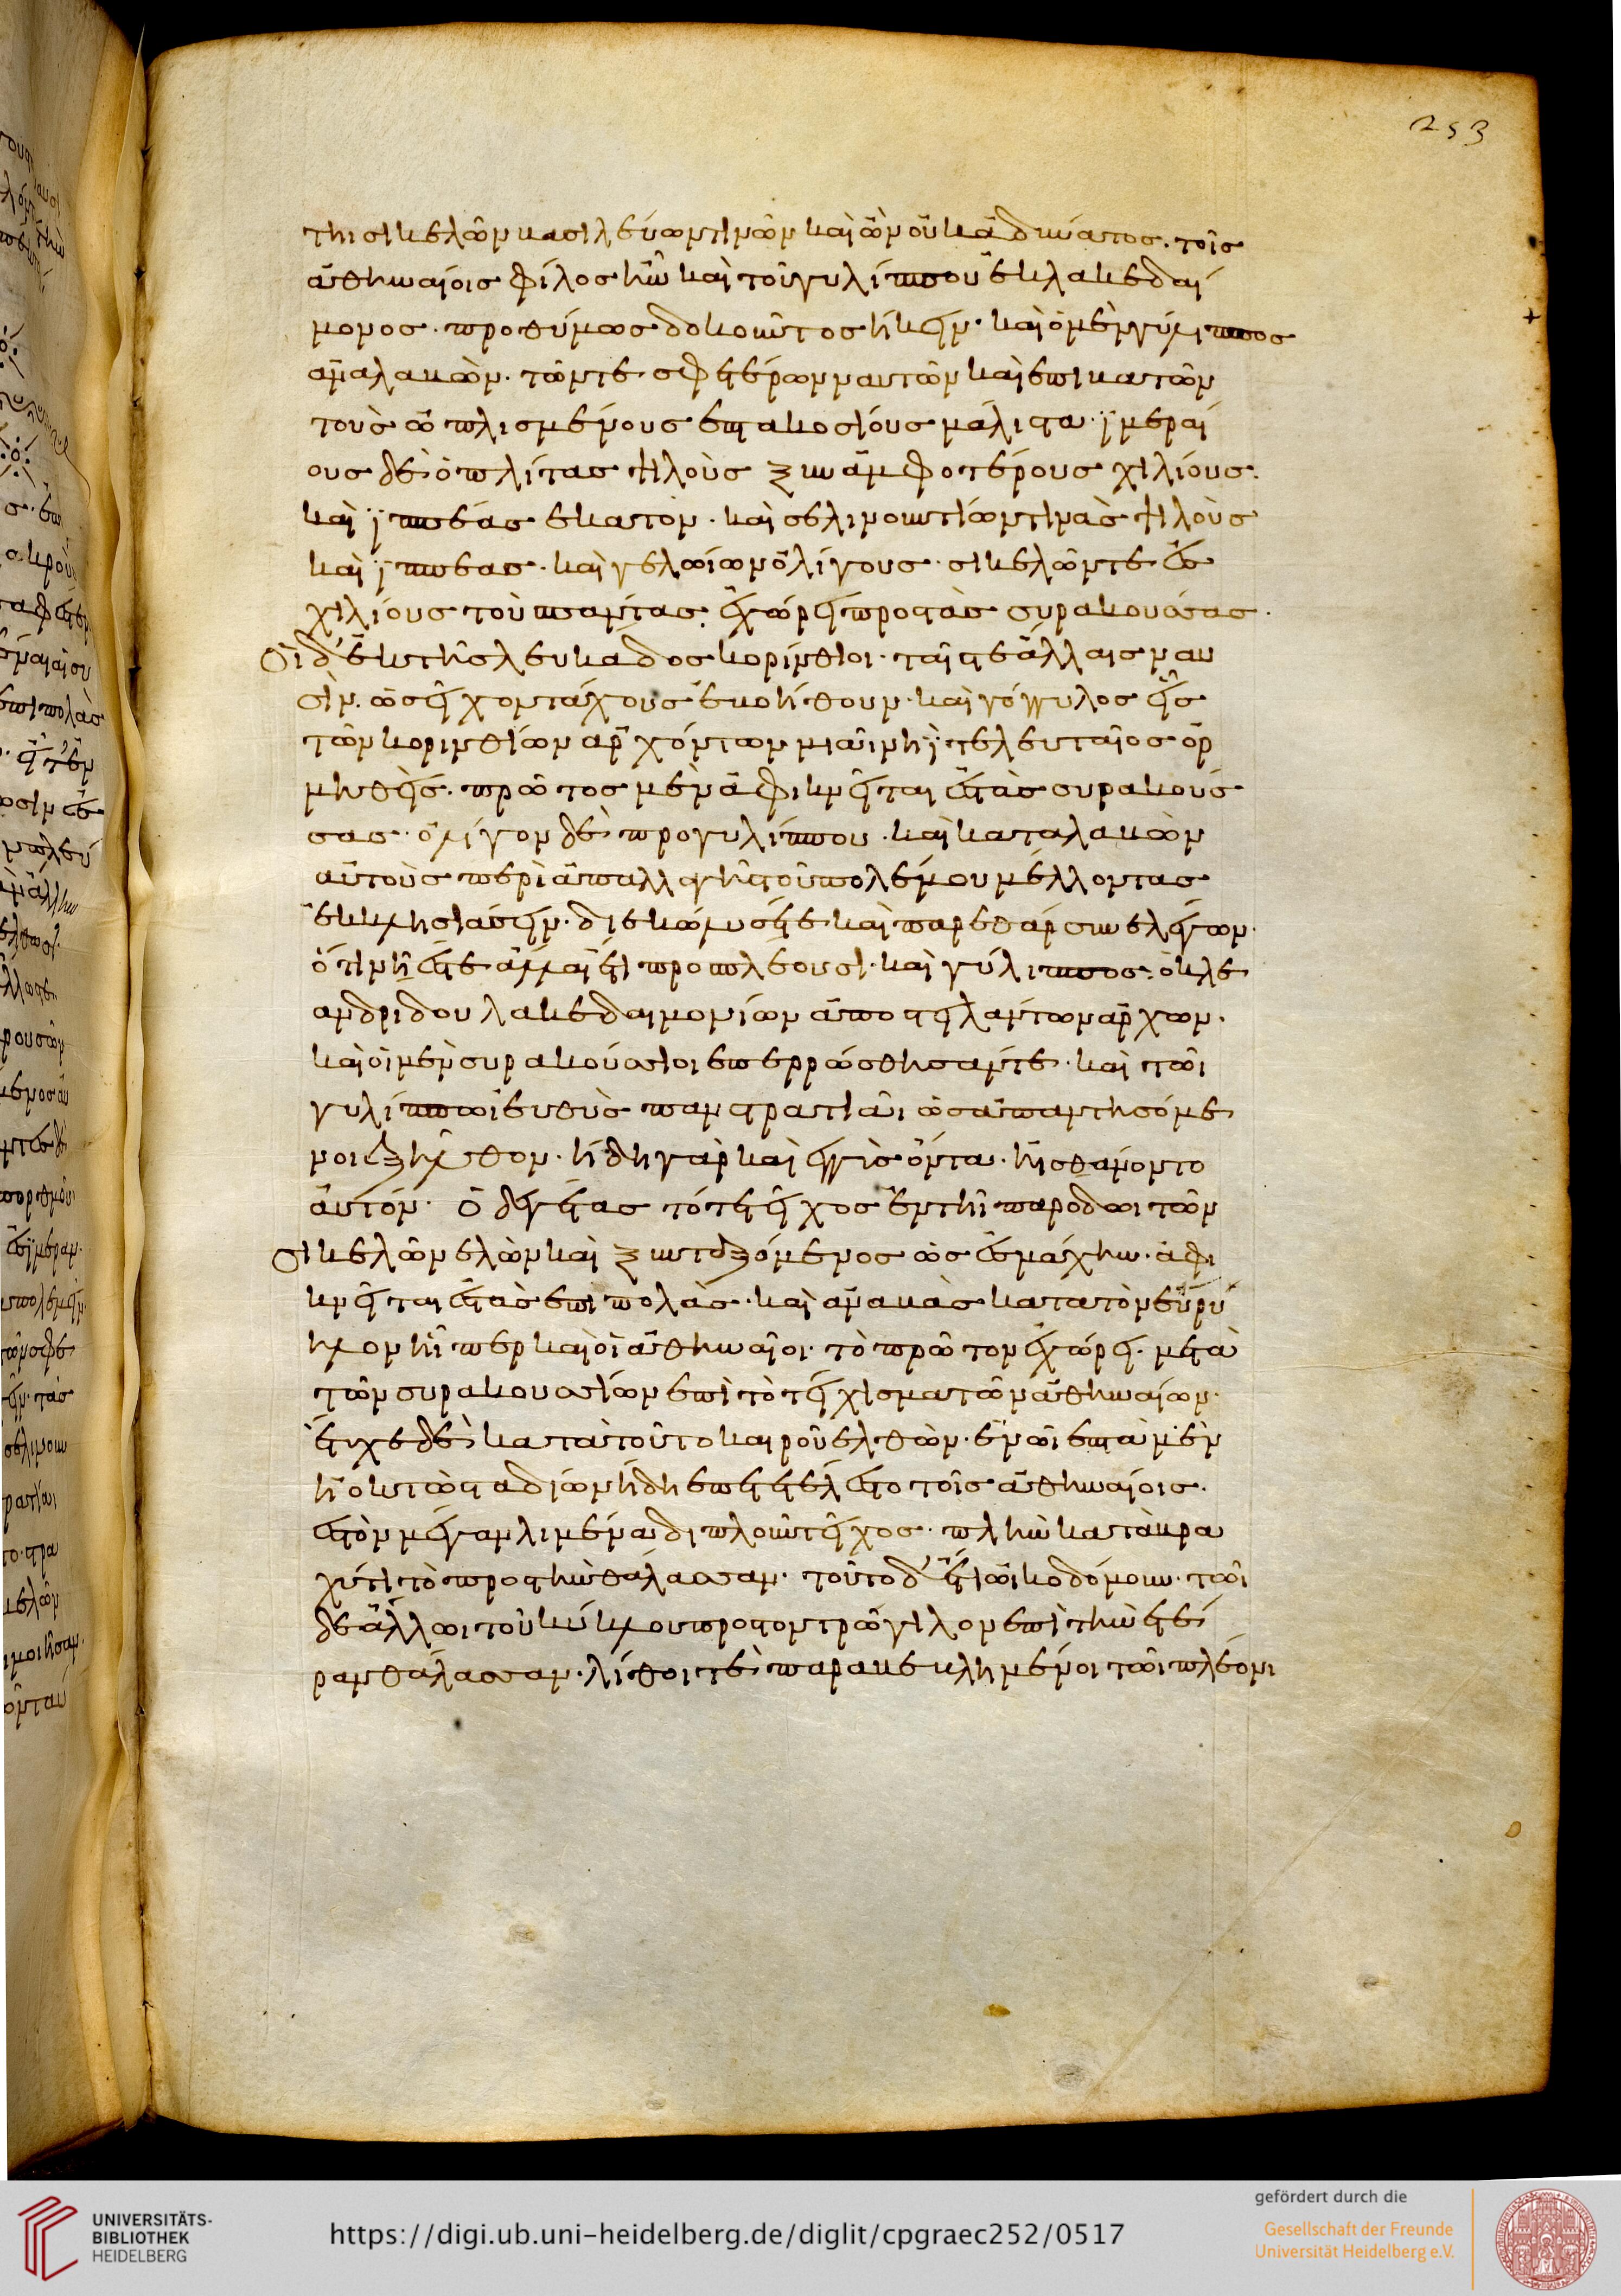 τηι σικελῶν βασιλεύων τινῶν καὶ ὢν οὐκ ἀδύνατος. τοῖς
ἀθηναίοις φίλος ἦν καὶ τοῦ γυλίππου ἐκ λακεδαί
μονος. προθύμως δοκοῦντος ἥκειν. καὶ ὁ μὲν γύλιππος
ἀναλαβὼν. τῶν τε σφετέρων ναυτῶν καὶ ἐπιβατῶν
τοὺς ὡπλισμένους ἑπτακοσίους μάλιστα. ἱμεραί
ους δὲ ὁπλίτας ψιλοὺς ξυναμφοτέρους χιλίους.
καὶ ἱππέας ἑκατὸν. καὶ σελινουντίων τινὰς ψιλοὺς
καὶ ἱππέας. καὶ γελώιων ὀλίγους. σικελῶν τε ἐς
χιλίους τοὺ πάντας. ἐχώρει προς τὰς συρακούσας.
Οἱ δ' ἐκ τῆς λευκαδος κορίνθιοι. ταῖς τε ἄλλαις ναυ
σὶν. ὡς εἶχον τάχους ἐβοήθουν. καὶ γόγγυλος εἷς
τῶν κορινθίων ἀρχόντων μιᾶι νηῒ τελευταῖος ὁρ
μηθεὶς. πρῶτος μὲν ἀφικνεῖται ἐς τὰς συρακούς
σας. ὀλίγον δὲ προ γυλίππου. καὶ καταλαβὼν
αὐτοὺς περὶ ἀπαλλαγῆς τοῦ πολέμου μέλλοντας
ἐκκλησιάσειν. διεκώλυσέ τε καὶ παρεθάρσυνε λέγων.
ὅτι νῆές τε ἄλλαι ἔτι προπλέουσι. καὶ γύλιππος. ὁ κλε
ανδριδου λακεδαιμονίων ἀποστειλάντων ἄρχων.
καὶ οἱ μὲν συρακούσιοι ἐπερρώσθησάν τε. καὶ τῶι
γυλίππωι εὐθὺς πανστρατιᾶι ὡς ἀπαντησόμε
νοι ἐξῆλθον. ἤδη γὰρ καὶ ἐγγὺς ὄντα. ἠισθάνοντο
αὐτόν. Ὁ δὲ γέτας τότε τεῖχος ἐν τῆι παρόδωι τῶν
σικελῶν ἑλὼν καὶ ξυνταξάμενος ὡς ἐς μάχην. ἀφι
κνεῖται ἐς τὰς ἐπιπολάς. καὶ ἀναβὰς κατὰ τὸν εὐρύ
ηλον ἧιπερ καὶ οἱ ἀθηναῖοι. τὸ πρῶτον ἐχώρει. μετὰ
τῶν συρακουσίων ἐπὶ τὸ τείχισμα τῶν ἀθηναίων.
ἔτυχε δὲ κατὰ τοῦτο καιροῦ ἐλθὼν. ἐν ὧι ἑπτὰ μὲν
ἢ ὀκτὼ σταδίων ἤδη ἐπετετέλεστο τοῖς ἀθηναίοις.
ἐς τὸν μέγαν λιμένα διπλοῦν τεῖχος. πλὴν κατὰ βρα
χύ τι τὸ προς τὴν θάλασσαν. τοῦτο δ' ἔτι ὠικοδόμουν. τῶι
δὲ ἄλλωι τοῦ κύκλου προς τον τρώγιλον ἐπὶ τὴν ἑτέ
ραν θάλασσαν. λίθοι τὲ παραβεβλημένοι τῶι πλέονι
253
UNIVERSITÄTS-
BIBLIOTHEK
HEIDELBERG
https://digi.ub.uni-heidelberg.de/diglit/cpgraec252/0517
gefördert durch die
Gesellschaft der Freunde
Universität Heidelberg e.V.